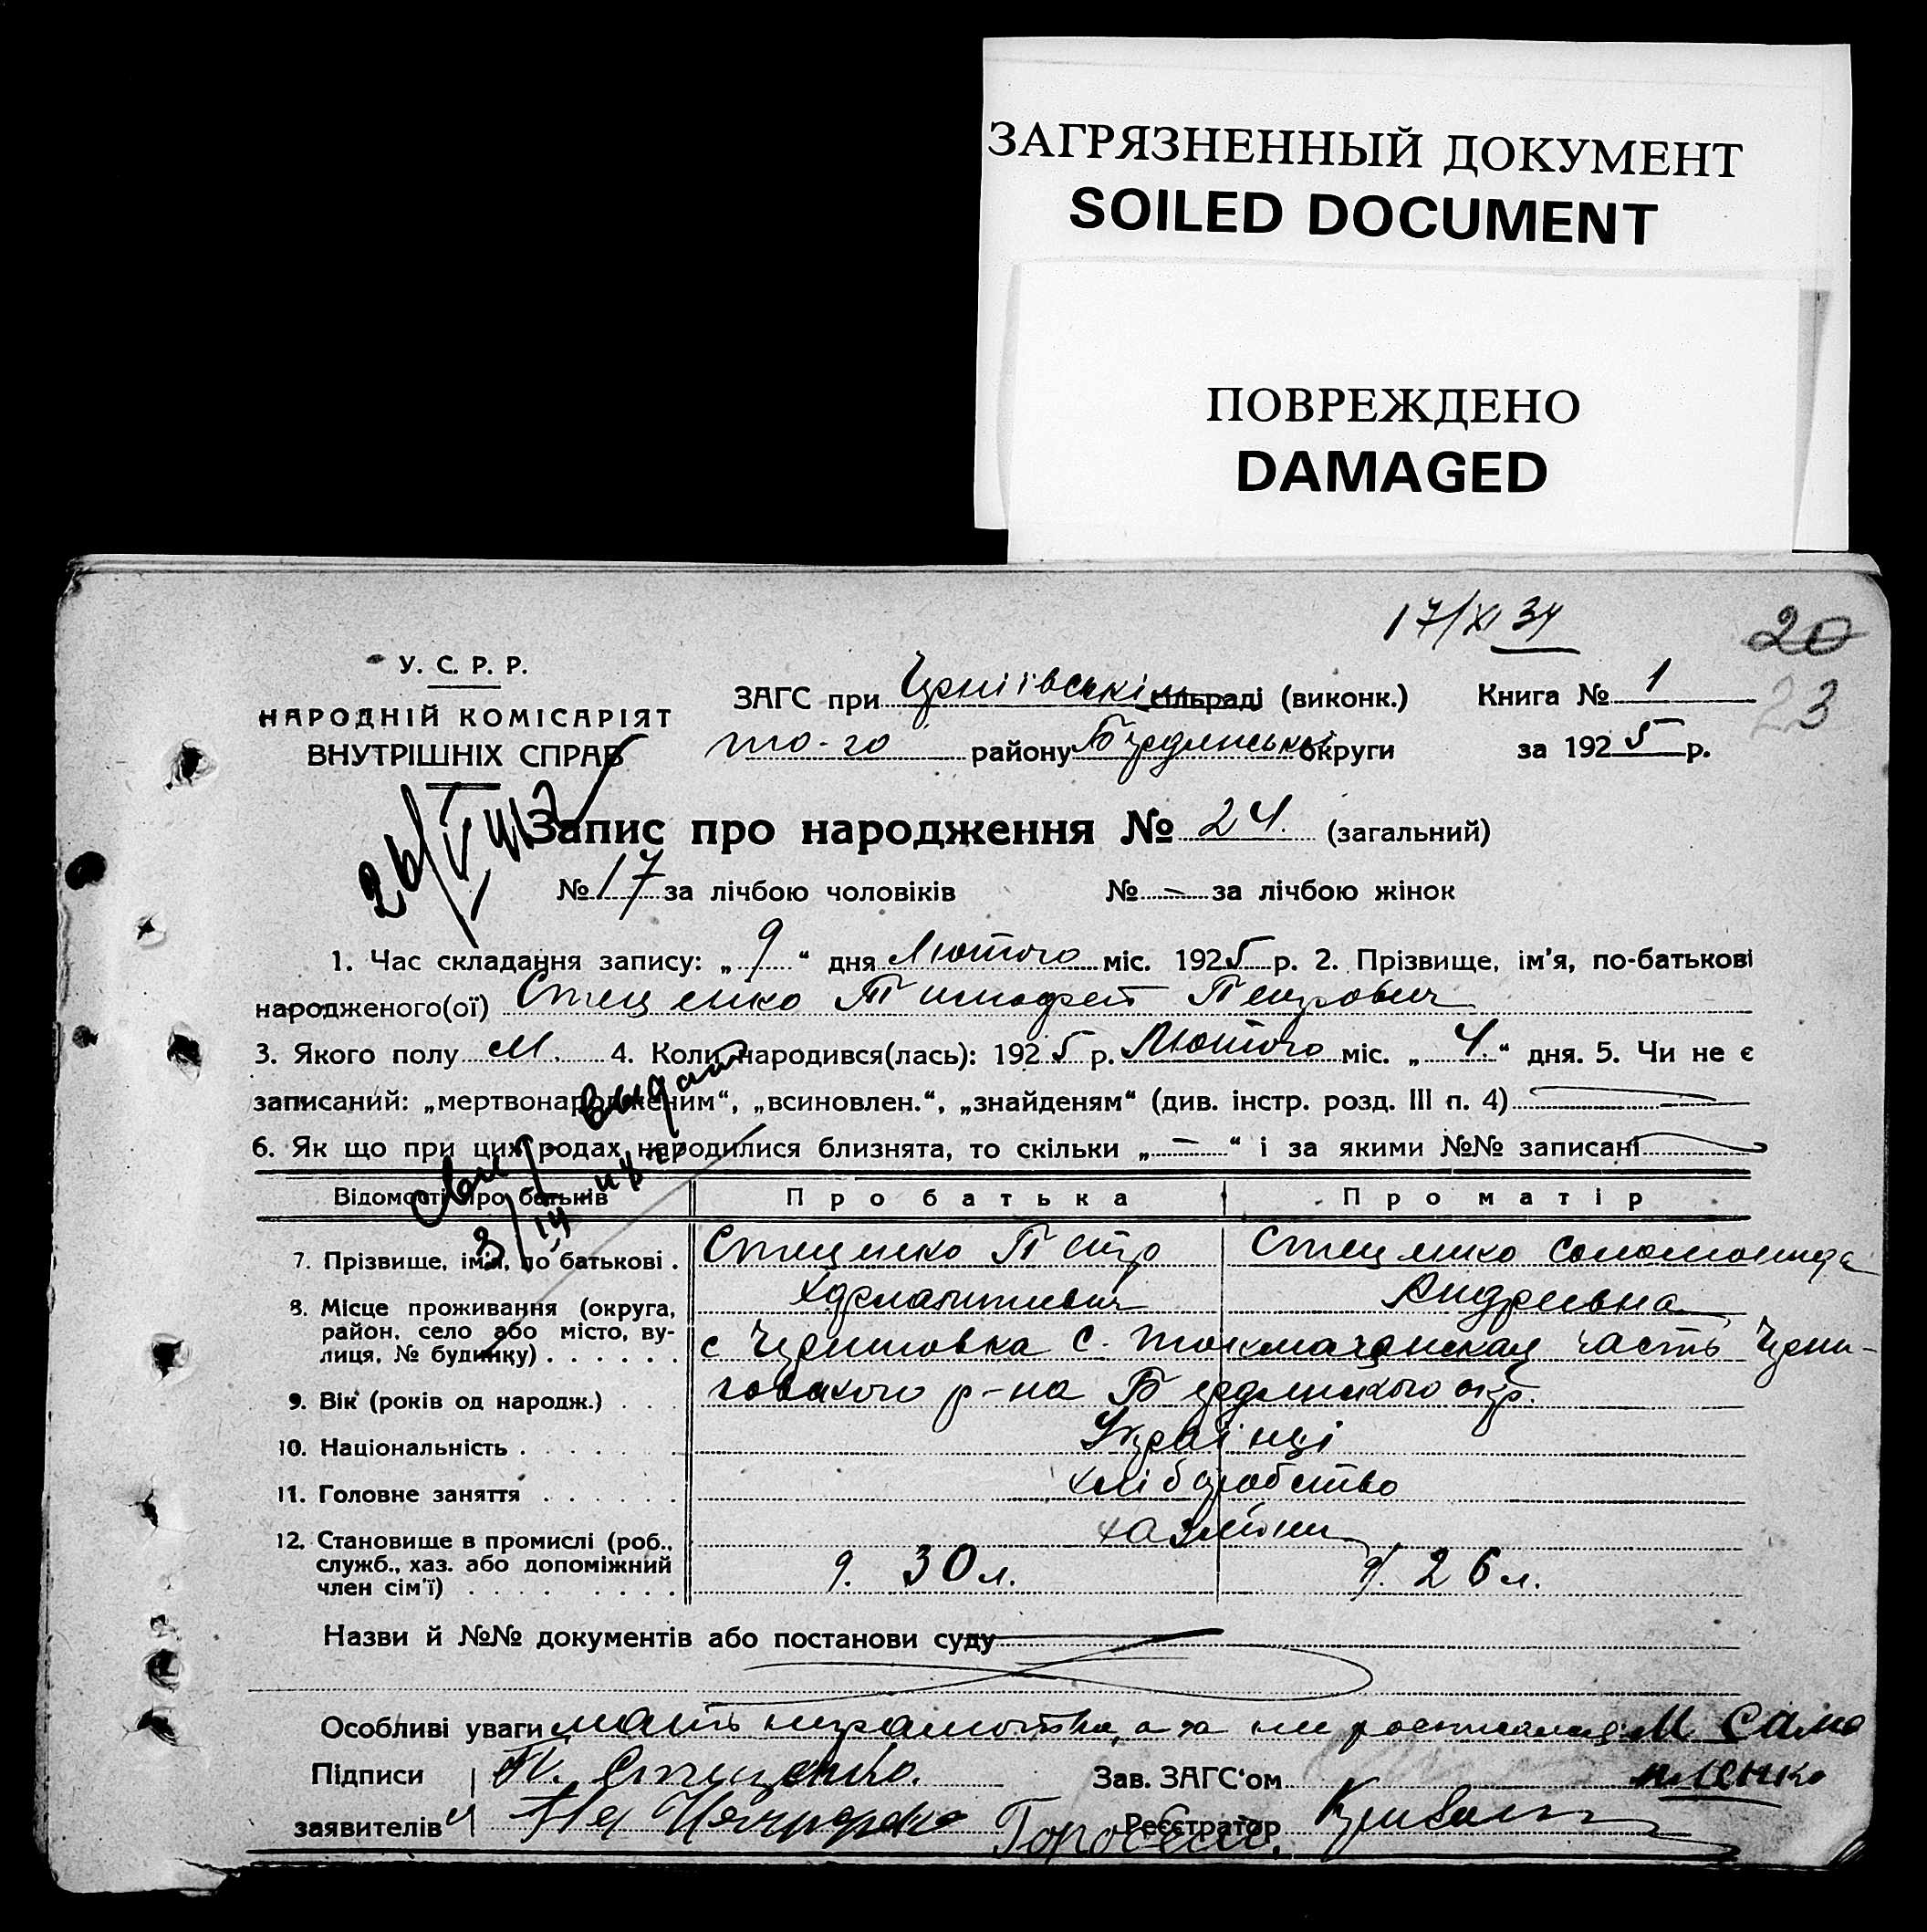 ЗАГРЯЗНЕННЫЙ ДОКУМЕНТ
SOILED DOCUMENT
ПОВРЕЖДЕНО
DAMAGED
17/XI 34
20
23
У. С. Р. Р.
НАРОДНІЙ КОМІСАРІЯТ
ВНУТРІШНІХ СПРАВ
ЗАГС при сільраді (виконк.) Книга № 1
то-го району округи за 1925 р.
Запис про народження № 24. (загальний)
№ 17 за лічбою чоловіків № — за лічбою жінок
1. Час складання запису: „ 9 “ дня Лютого міс. 1925 р. 2. Прізвище, ім'я, по-батькові
народженого(ої) Стеценко Тимофей Петрович
3. Якого полу м. 4. Коли народився(лась): 1925 р. Лютого міс. „ 4. “ дня. 5. Чи не є
записаний: „мертвонародженим“, „всиновлен.“, „знайденям“ (див. інстр. розд. III п. 4)
6. Як що при цих родах народилися близнята, то скільки „ — “ і за якими №№ записані
Відомості про батьків Про батька Про матір
7. Прізвище, ім'я, по батькові . Стеценко Петр Стеценко Соломонида
Андреевна
8. Місце проживання (округа,
район, село або місто, ву-
лиця, № будинку) . . . . . .
с Черниговка С. Токмачанская часть Черни-
9. Вік (років од народж.) . . . говского р-на Бердянского окр.
10. Національність . . . . . . Українці
11. Головне заняття . . . . . хліборобство
12. Становище в промислі (роб.,
служб., хаз. або допоміжний
член сім'ї) . . . . . . . . .
30 л. 26 л.
Назви й №№ документів або постанови суду
Особливі уваги мать неграмотна, а за нее М Само
йленко
Підписи П. Стеценко. Зав. ЗАГС'ом
заявителів Реєстратор